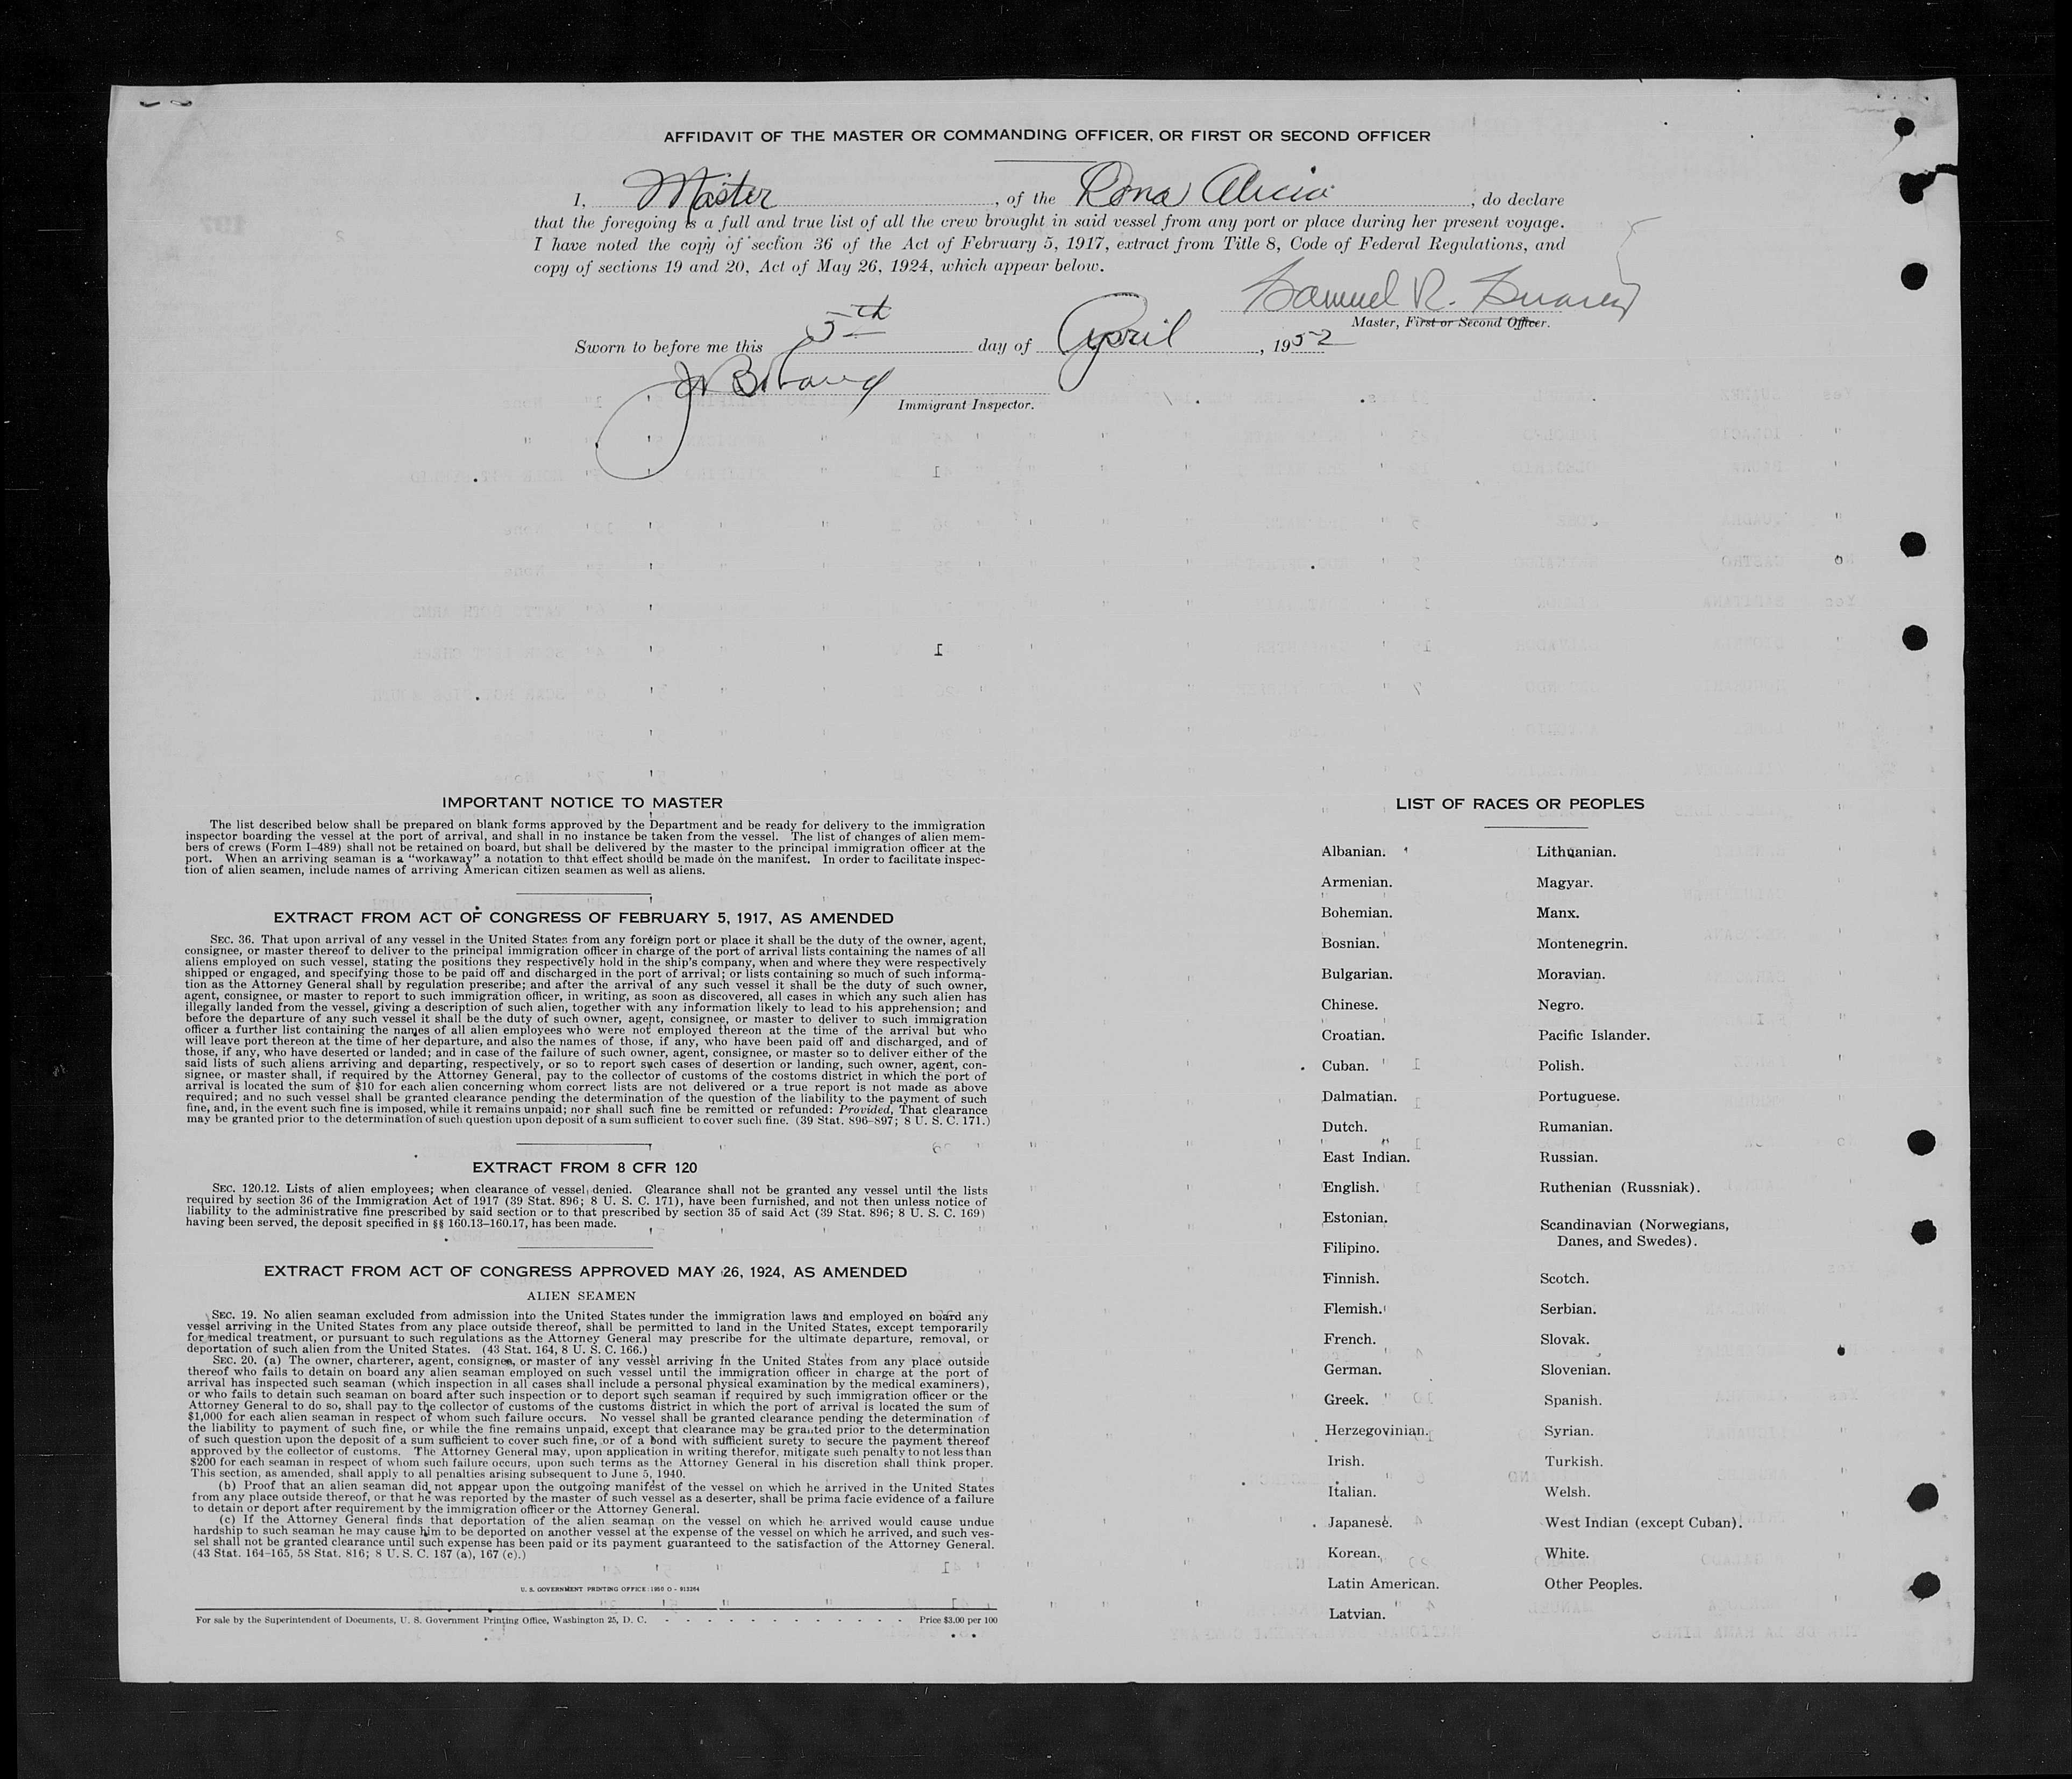 AFFIDAVIT OF THE MASTER OR COMMANDING OFFICER, OR FIRST OR SECOND OFFICER
I, Master, of the Dona Alicia, do declare
that the foregoing is a full and true list of all the crew brought in said vessel from any port or place during her present voyage.
I have noted the copy of section 36 of the Act of February 5, 1917, extract from Title 8, Code of Federal Regulations, and
copy of sections 19 and 20, Act of May 26, 1924, which appear below.
Samuel R. Suarez
Master, First or Second Officer.
Sworn to before me this 5th day of April, 1952
Immigrant Inspector.
IMPORTANT NOTICE TO MASTER
The list described below shall be prepared on blank forms approved by the Department and be ready for delivery to the immigration
inspector boarding the vessel at the port of arrival, and shall in no instance be taken from the vessel. The list of changes of alien mem-
bers of crews (Form I-489) shall not be retained on board, but shall be delivered by the master to the principal immigration officer at the
port. When an arriving seaman is a "workaway" a notation to that effect should be made on the manifest. In order to facilitate inspec-
tion of alien seamen, include names of arriving American citizen seamen as well as aliens.
EXTRACT FROM ACT OF CONGRESS OF FEBRUARY 5, 1917, AS AMENDED
SEC. 36. That upon arrival of any vessel in the United States from any foreign port or place it shall be the duty of the owner, agent,
consignee, or master thereof to deliver to the principal immigration officer in charge of the port of arrival lists containing the names of all
aliens employed on such vessel, stating the positions they respectively hold in the ship's company, when and where they were respectively
shipped or engaged, and specifying those to be paid off and discharged in the port of arrival; or lists containing so much of such informa-
tion as the Attorney General shall by regulation prescribe; and after the arrival of any such vessel it shall be the duty of such owner,
agent, consignee, or master to report to such immigration officer, in writing, as soon as discovered, all cases in which any such alien has
illegally landed from the vessel, giving a description of such alien, together with any information likely to lead to his apprehension; and
before the departure of any such vessel it shall be the duty of such owner, agent, consignee, or master to deliver to such immigration
officer a further list containing the names of all alien employees who were not employed thereon at the time of the arrival but who
will leave port thereon at the time of her departure, and also the names of those, if any, who have been paid off and discharged, and of
those, if any, who have deserted or landed; and in case of the failure of such owner, agent, consignee, or master so to deliver either of the
said lists of such aliens arriving and departing, respectively, or so to report such cases of desertion or landing, such owner, agent, con-
signee, or master shall, if required by the Attorney General, pay to the collector of customs of the costoms district in which the port of
arrival is located the sum of $10 for each alien concerning whom correct lists are not delivered or a true report is not made as above
required; and no such vessel shall be granted clearance pending the determination of the question of the liability to the payment of such
fine, and, in the event such fine is imposed, while it remains unpaid; nor shall such fine be remitted or refunded: Provided, That clearance
may be granted prior to the determination of such question upon deposit of a sum sufficient to cover such fine. (39 Stat. 896-897; 8 U. S. C. 171.)
EXTRACT FROM 8 CFR 120
SEC. 120.12. Lists of alien employees; when clearance of vessel denied. Clearance shall not be granted any vessel until the lists
required by section 36 of the Immigration Act of 1917 (39 Stat. 896; 8 U. S. C. 171), have been furnished, and not then unless notice of
liability to the administrative fine prescribed by said section or to that prescribed by section 35 of said Act (39 Stat. 896; 8 U. S. C. 169)
having been served, the deposit specified in §§ 160.13-160.17, has been made.
EXTRACT FROM ACT OF CONGRESS APPROVED MAY 26, 1924, AS AMENDED
ALIEN SEAMEN
SEC. 19. No alien seaman excluded from admission into the United States under the immigration laws and employed on board any
vessel arriving in the United States from any place outside thereof, shall be permitted to land in the United States, except temporarily
for medical treatment, or pursuant to such regulations as the Attorney General may prescribe for the ultimate departure, removal, or
deportation of such alien from the United States. (43 Stat. 164, 8 U. S. C. 166.)
SEC. 20. (a) The owner, charterer, agent, consignee, or master of any vessel arriving in the United States from any place outside
thereof who fails to detain on board any alien seaman employed on such vessel until the immigration officer in charge at the port of
arrival has inspected such seaman (which inspection in all cases shall include a personal physical examination by the medical examiners),
or who fails to detain such seaman on board after such inspection or to deport such seaman if required by such immigration officer or the
Attorney General to do so, shall pay to the collector of customs of the customs district in which the port of arrival is located the sum of
$1,000 for each alien seaman in respect of whom such failure occurs. No vessel shall be granted clearance pending the determination of
the liability to payment of such fine, or while the fine remains unpaid, except that clearance may be granted prior to the determination
of such question upon the deposit of a sum sufficient to cover such fine, or of a bond with sufficient surety to secure the payment thereof
approved by the collector of customs. The Attorney General may, upon application in writing therefor, mitigate such penalty to not less than
$200 for each seaman in respect of whom such failure occurs, upon such terms as the Attorney General in his discretion shall think proper.
This section, as amended, shall apply to all penalties arising subsequent to June 5, 1940.
(b) Proof that an alien seaman did not appear upon the outgoing manifest of the vessel on which he arrived in the United States
from any place outside thereof, or that he was reported by the master of such vessel as a deserter, shall be prima facie evidence of a failure
to detain or deport after requirement by the immigration officer or the Attorney General.
(c) If the Attorney General finds that deportation of the alien seaman on the vessel on which he arrived would cause undue
hardship to such seaman he may cause him to be deported on another vessel at the expense of the vessel on which he arrived, and such ves-
sel shall not be granted clearance until such expense has been paid or its payment guaranteed to the satisfaction of the Attorney General.
(43 Stat. 164-165, 58 Stat. 816; 8 U. S. C. 167 (a), 167 (c).)
U. S. GOVERNMENT PRINTING OFFICE : 1950 O - 913264
For sale by the Superintendent of Documents, U. S. Government Printing Office, Washington 25, D. C. - - - - - - - - - - - Price $3.00 per 100
LIST OF RACES OR PEOPLES
Albanian.
Armenian.
Bohemian.
Bosnian.
Bulgarian.
Chinese.
Croatian.
Cuban.
Dalmatian.
Dutch.
East Indian.
English.
Estonian.
Filipino.
Finnish.
Flemish.
French.
German.
Greek.
Herzegovinian.
Irish.
Italian.
Japanese.
Korean.
Latin American.
Latvian.
Lithuanian.
Magyar.
Manx.
Montenegrin.
Moravian.
Negro.
Pacific Islander.
Polish.
Portuguese.
Rumanian.
Russian.
Ruthenian (Russniak).
Scandinavian (Norwegians,
Danes, and Swedes).
Scotch.
Serbian.
Slovak.
Slovenian.
Spanish.
Syrian.
Turkish.
Welsh.
West Indian (except Cuban).
White.
Other Peoples.